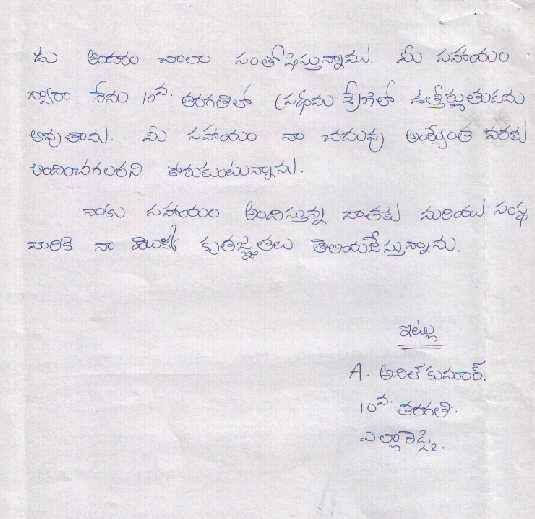 కు ఆనందం చాలా సంతోషిస్తున్నాము. మీ సహాయం
ద్వారా నేను 10వ. తరగతిలో ప్రథమ శ్రేణిలో ఉత్తీర్ణుతుడను
అవుతాను. మీ సహాయం నా చదువు అంత్యంత వరకు
అందించగలరని కోరుకుంటున్నాను.
నాకు సహాయం అందిస్తున్న దాతకు మరియు సంస్థ
వారికి నా కృతజ్ఞతలు తెలియజేస్తున్నాను.
ఇట్లు
A. అనిల్ కుమార్.
10వ. తరగతి.
ఎల్లారెడ్డి